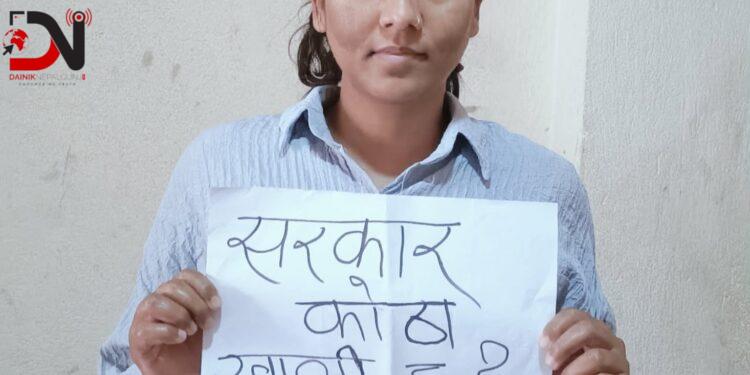 DN
DAINIKNEPALGUNJ
सरकार
कोठा
खाली छ ?